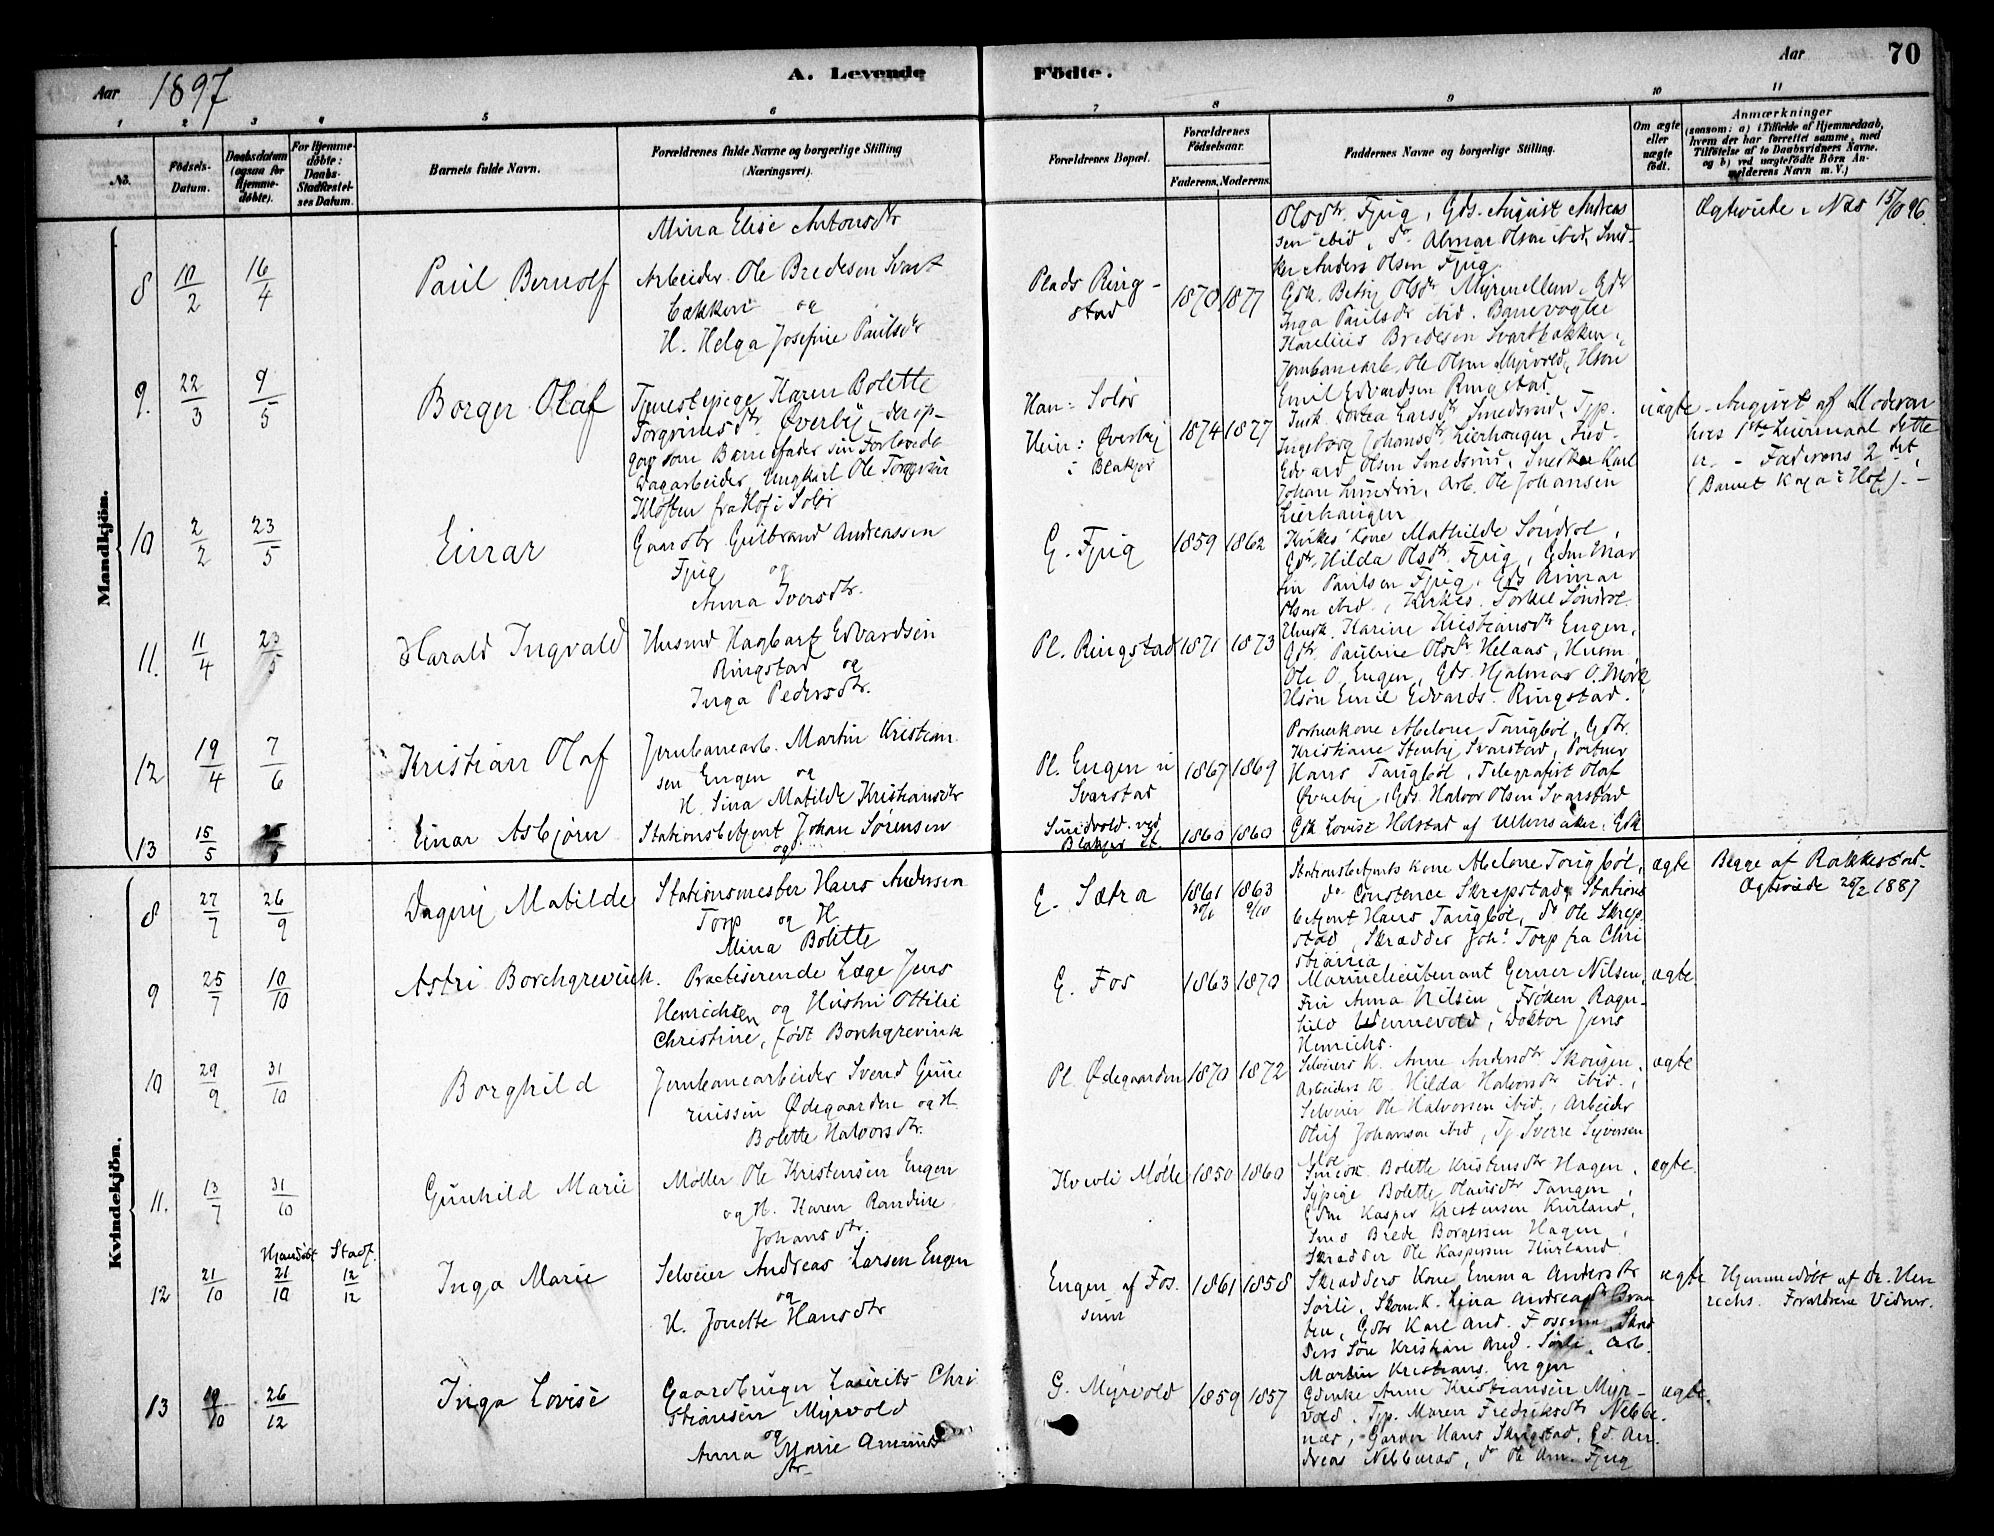 Aar 1897
A. Levende Födte.
Aar
70
1 2 3 4 5 6 7 8 9 10 11
No.
Födsels-Datum.
Daabsdatum (ogsaa for Hjemme-döbte).
For Hjemme-döbte: Daabs-Stadfæstel-ses Datum.
Barnets fulde Navn.
Forældrenes fulde Navne og borgerlige Stilling (Næringsvei).
Forældrenes Bopæl.
Forældrenes Födselsaar.
Faderens. Moderens.
Faddernes Navne og borgerlige Stilling.
Om ægte eller uægte födt.
Anmærkninger
(saasom: a) i Tilfælde af Hjemmedaab, hvem der har forrettet samme, med Tilföielse af to Daabsvidners Navne. og b) ved uægtefödte Börn Anmelderens Navn m. V.)
Mandkjön.
Mina Elise Antonsdtr
Olsdtr. Fjug, Gds. August Andreas
sen ibid, do Almar Olsen ibid, Sned-
ker Anders Olsen Fjug
Ægteviede i Næs 15/10 96.
8 10/2 16/4 Paul Bernolf
Arbeider Ole Bredesen Svart
bækken og
H. Helga Josefine Paulsdtr
Plads Ring-
stad
1870 1877
Gdk. Betsy Olsdtr Myrmellem, Gdtr
Inga Paulsdtr ibid. Banevogte
Karelius Bredesen Svartbækken,
Jernbanearb. Ole Olsen Myrvold, Hsøn
Emil Edvardsen Ringstad.
9. 22/3 9/5 Borger Olaf
Tjenestepige Karen Bolette
Torgrimsdtr. Øverby, der op-
gav som Barnefader sin Forlovede
Dagarbeider, Ungkarl Ole Torgersen
Kloften fra Hof i Solør
Han: Solør
Hun: Øverby
i Blakjer
1874 1877
Husk. Dorea Larsdtr Smedsrud, Tjp.
Ingeborg Johansdtr Lierhaugen,
Edvard Olsen Smedsrud, Snedker Karl
Johan Lundin, Arb. Ole Johansen
Lierhaugen
uægte
Angivet af Moderen
hvis 1ste Leiermaal dette
er. - Faderens 2det
(Barnet Kaja i Hof). -
10 2/2 23/5 Einar
Gaardbr Gulbrand Andreassen
Fjug og
Anna Iversdtr.
G. Fjug
1859 1862
Kirkes. Kone Mathilde Søndrol,
Gdtr. Hilda Olsdtr. Fjug, Gdm Mar
tin Paulsen Fjug, Gds Almar
Olsen ibid., Kirkes. Torkel Søndrol.
11. 11/4 23/5 Harald Ingvald
Husmd Hagbart Edvardsen
Ringstad og
Inga Pedersdtr.
Pl. Ringstad
1871 1873
Husk. Karine Kristiansdtr Engen,
Gdtr. Pauline Olsdtr Helaas, Husm
Ole O. Engen, Gds. Hjalmar O. Mørk
Hsøn Emil Edvards. Ringstad.
12 19/4 7/6 Kristian Olaf
Jernbanearb. Martin Kristian
sen Engen og
H. Lina Matilde Kristiansdtr
Pl. Engen u
Svarstad
1867 1869
Portnerkone Abelone Taugbøl, Gdtr.
Kristiane Stenby Svarstad, Portner
Hans Taugbøl, Telegrafist Olaf
Øvreby, Gds. Halvor Olsen Svarstad
13 15/5 Einar Asbjørn
Stationsbetjent Johan Sørensen
og
Smidvold ved
Blakjer St.
1860 1860
Gdk Lovise Helstad af Ullensaker, Gdk
Kvindekjön.
8 27/7 26/9 Dagny Matilde
Stationsmester Hans Andersen
Torp og H.
Mina Bolette
G. Sætra
1861 20/1
1863 9/10
Stationsbetjents Kone Abelone Taugbøl,
do Constence Skrepstad, Stations
betjent Hans Taugbøl, do Ole Skrep-
stad, Skrædder Johs Torp fra Chri
stiania
ægte
Begge af Rakkestad.
Ægteviede 26/2 1887
9 25/7 10/10 Astri Borchgrevink.
Practiserende Læge Jens
Henrichsen og Hustru Ottilie
Christine, født Borchgrevink
G. Fos
1863 1870
Marinelieutenant Gerner Nilsen,
Fru Anna Nilsen, Frøken Ragn-
hild Wennevold, Doktor Jens
Henrichs.
ægte.
10 29/9 31/10 Borghild
Jernbanearbeider Svend Gune
riussen Ødegaarden og H.
Bolette Halvorsdtr.
Pl. Ødegaarden
1870 1872
Selveiers K. Anne Andersdtr Skougen,
Arbeiders K. Hilda Halvorsdtr ibid.,
Selveier Ole Halvorsen ibid, Arbeider
Oluf Johansen ibid, Tj Sverre Syversen
Moe
ægte
11. 13/7 31/10 Gunhild Marie
Møller Ole Kristensen Engen
og H. Karen Randine
Johansdtr.
Kvevli Mølle
1850 1860
Smedk. Bolette Kristensdtr Hagen,
Sypige Bolette Olausdtr Tangen,
Gdm Kasper Kristensen Kurland,
Smed Brede Borgersen Hagen,
Skrædder Ole Kaspersen Kurland
ægte.
Hjemdøbt Stadf.
12 21/10 21/10 12/12 Inga Marie
Selveier Andreas Larsen Engen
og
H. Jonette Hansdtr
Engen af Fos.
sum
1861 1858
Skrædders Kone Emma Andersdtr
Sørli, Skom.K. Lina Andreasdtr Braa
ten, Gdbr Karl And. Fossum, Skræd
ders Søn Kristian And. Sørli, Arb.
Martin Kristians. Engen
ægte
Hjemmedøbt af Dr. Hen
richs. Forældrene Vidner.
13 19/10 26/12 Inga Lovise
Gaardbruger Laurits Chri
stiansen Myrvold
og
Anna Marie Amunds
dtr-
G. Myrvold
1859 1857
Gdenke Anne Kristiansen Myr-
vold, Tjp. Maren Fredriksdtr Nebbe-
næs, Garver Hans Skrepstad, Gd. An-
dreas Nebbenæs, do Ole Am. Fjug
ægte.